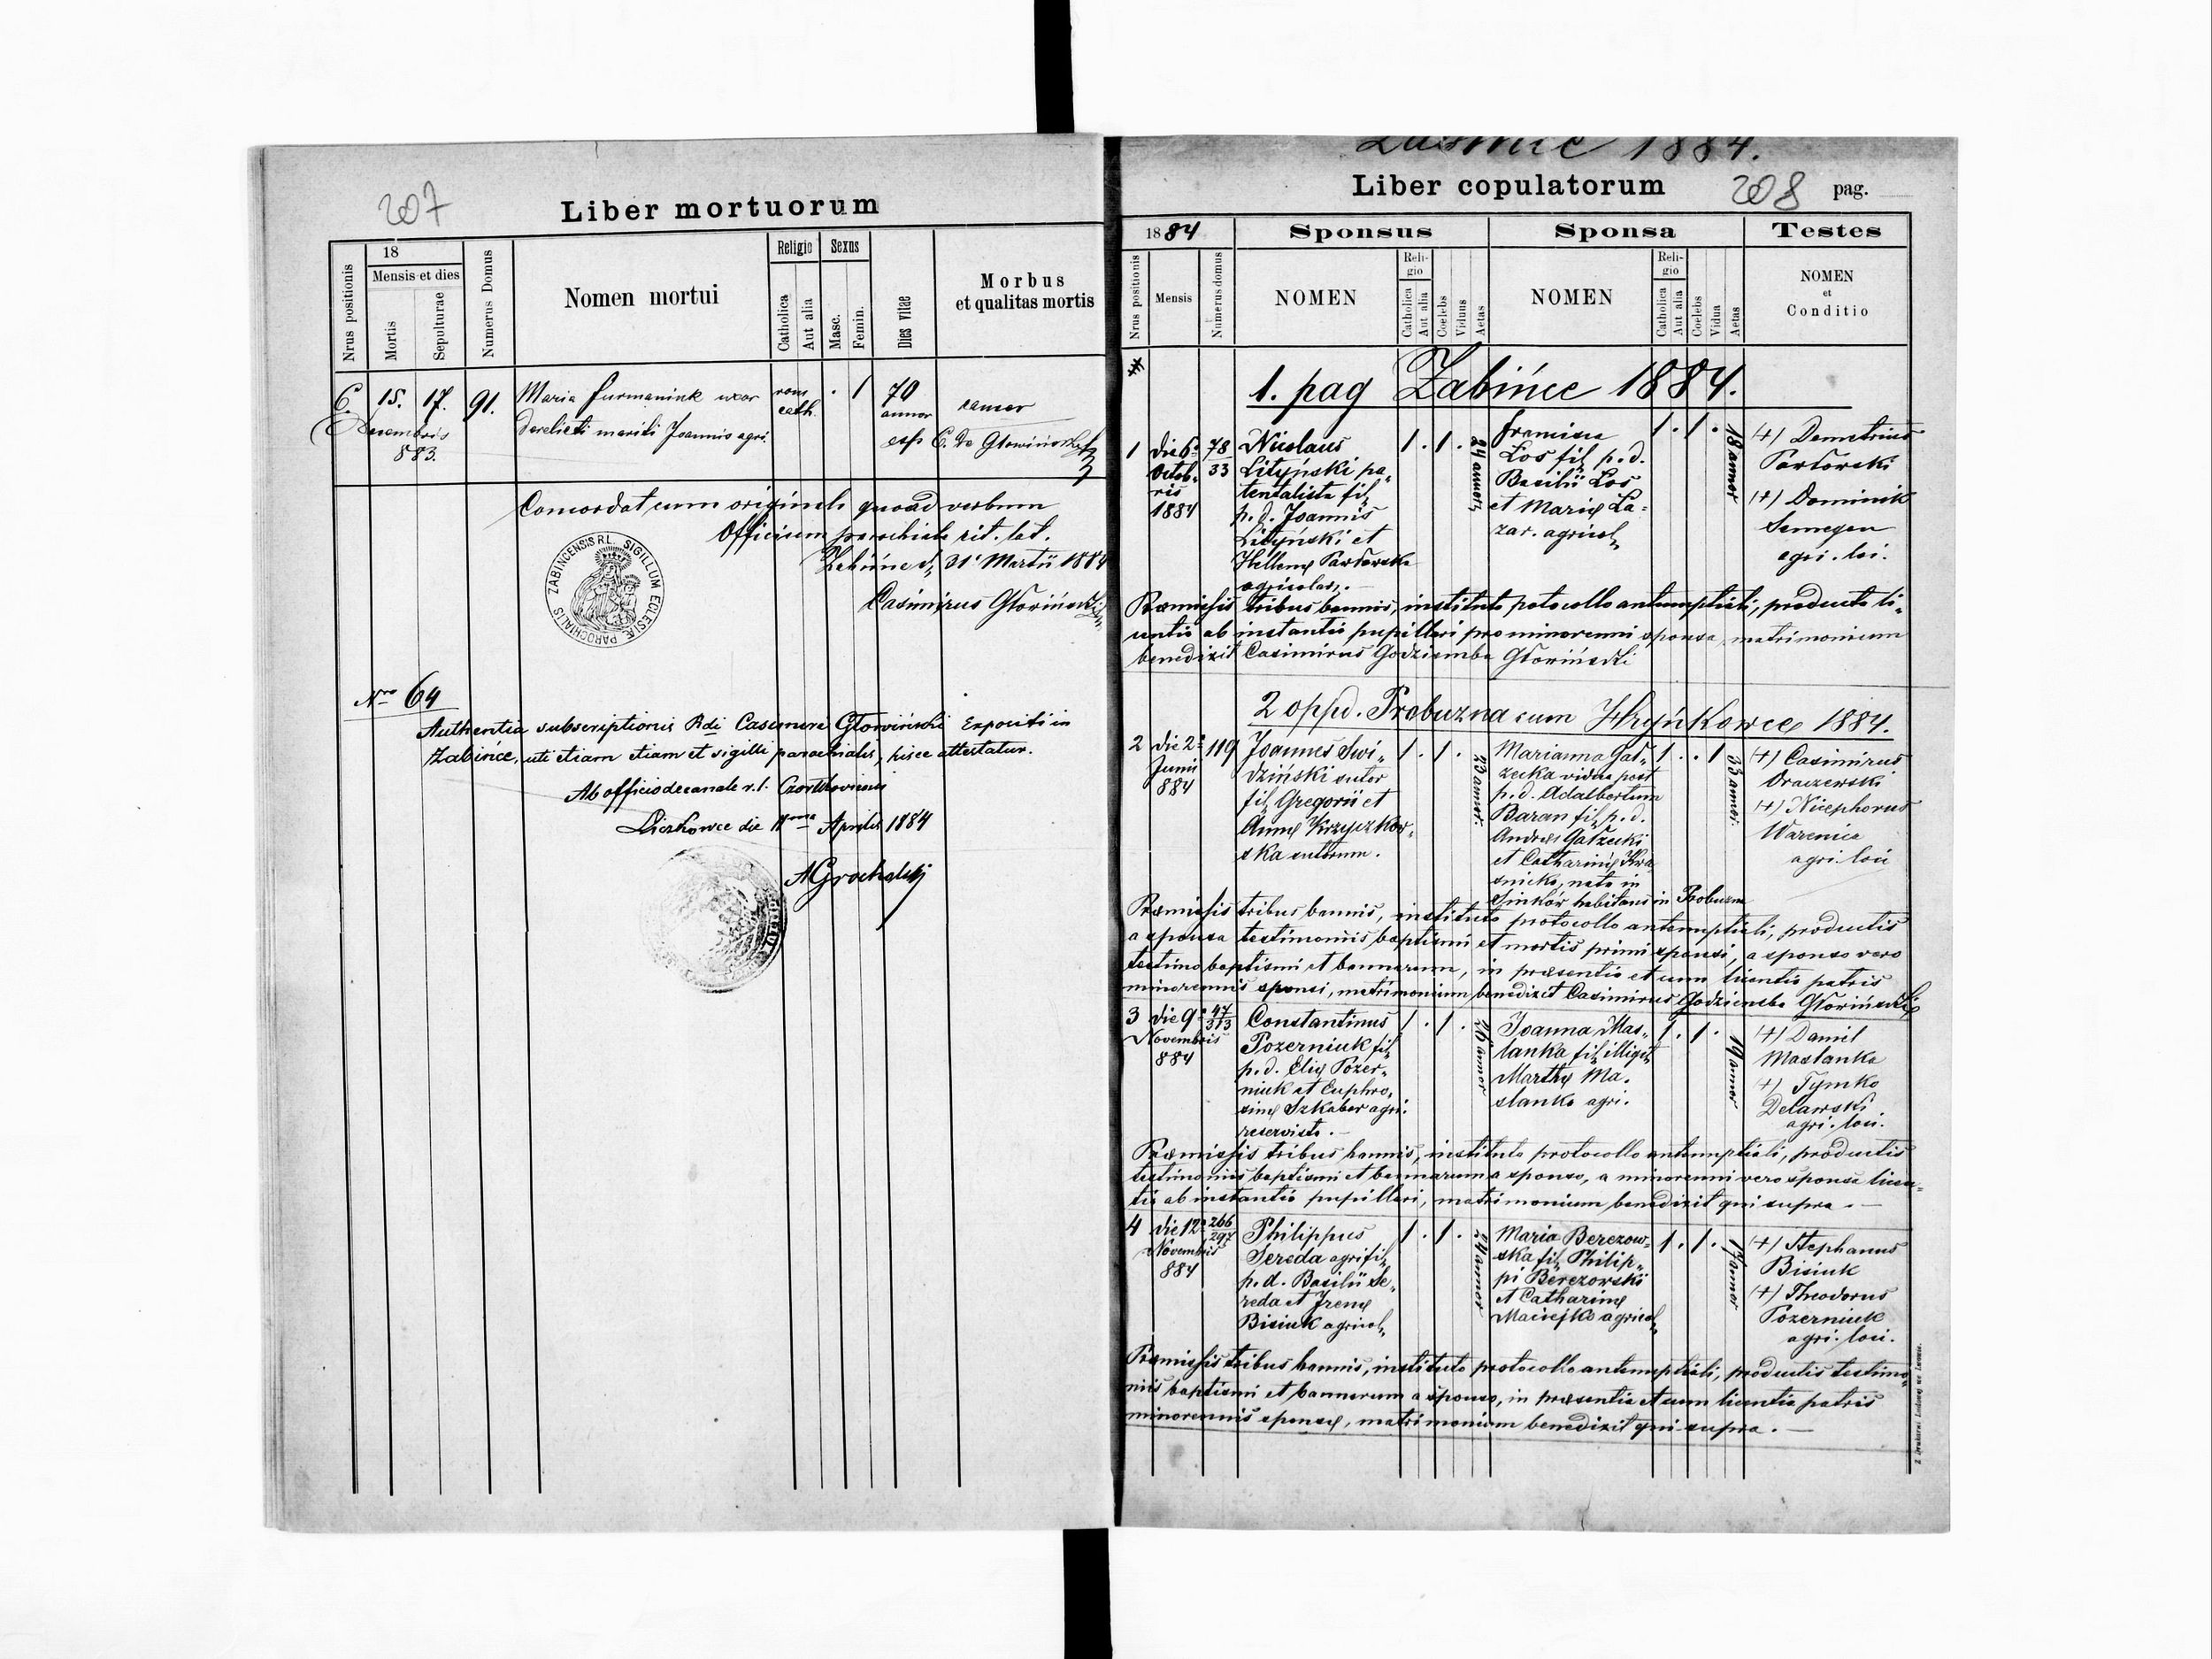 207
Liber mortuorum
Nrus positionis
18
Mensis et dies
Mortis
Sepulturae
Numerus Domus
Nomen mortui
Religio
Catholica
Aut alia
Sexus
Masc.
Femin.
Dies vitae
Morbus
et qualitas mortis
6. 15. 17. 91. Maria Furmaniuk uxor rom . 1 70 cancer
Decembris derelicti mariti Joannis agri. cath. annor
883.
exp C. de Głowiński
Concordat cum originale quoad verbum
Officium parochiale rit. lat.
Żabińce d. 31 Martii 1884
Casimirus Głowiński
ZABINCENSIS RL. SIGILLUM ECLESIÆ PAROCHIALIS
Nro 64
Authentia subscriptionis Rdi Casimiri Głowiński Expositi in
Żabińce, uti etiam etiam et sigilli parochialis, hisce attestatur.
Ab officio decanale r.l. Czortkoviensi
Liczkowce die Aprilis 1884
AGrochalsky
1884.
Liber copulatorum 208 pag.
1884
Sponsus
Sponsa
Testes
Nrus positionis
Mensis
Numerus domus
NOMEN
Reli-
gio
Catholica
Aut alia
Coelebs
Viduus
Aetas
NOMEN
Reli-
gio
Catholica
Aut alia
Coelebs
Vidua
Aetas
NOMEN
et
Conditio
1. pag Żabińce 1884.
1 die 6a
Octob-
ris
1884
78
33
Nicolaus
Lityński pa-
tentalista fil.
p. d. Joannis
Lityński et
Hellenę Pawłowska
agricolar. -
1 . 1 . 24 annor.
Francisca
Łos fil. p. d.
Basilii Łos
et Marię Ła-
zar. agricol.
1 . 1 . 18 annor
(+) Demetrius
Pawłowski
(+) Dominik
Semegen
agri. loci.
Præmissis tribus bannis, instituto potocollo antenuptiali, producta li-
centia ab instantia pupillari pro minorenni sponsa, matrimonium
benedixit Casimirus Godziemba Głowiński
2 oppd. Probuzna cum Hryńkowce 1884.
2 die 2a
Junii
884
119
Joannes Swi-
dziński sutor
fil. Gregorii et
Annę Krzyczkow-
ska sutorum.
1 . 1 . 23 annor.
Marianna Gał-
zecka vidua post
p. d. Adalbertum
Baran fil. p. d.
Andreę Gałzecki
et Catharinę Kwa
śnicka, nata in
Sinków habitans in Probuzna
1 . . 1 33 annor.
(+) Casimirus
Oraczewski
(+) Nicephorus
Warenica
agri. loci
Præmissis tribus bannis, instituto protocollo antenuptiali, productis
a sponsa testimoniis baptismi et mortis primi sponsi, a sponso vero
testimo baptismi et bannorum, in præsentia et cum licentia patris
minorennis sponsi, matrimonium benedixit Casimirus Godziemba Głowiński
3 die 9a
Novembris
884
47
313
Constantinus
Pozerniuk fil.
p. d. Elię Pozer-
niuk et Euphro-
sinę Szkabar agri.
reservista. -
1 . 1 . 26 annor
Joanna Mas-
lanka fil. illigit
Marthę Ma-
slanka agri.
1 . 1 . 19 annor
(+) Daniel
Maslanka
+) Tymko
Delawski
agri. loci.
Præmissis tribus bannis, instituto protocollo antenuptiali, productis
testimoniis baptismi et bannorum a sponso, a minorenni vero sponsa licen-
tia ab instantia pupillari, matrimonium benedixit qui supra. -
4 die 12a
Novembris
884
266
297
Philippus
Sereda agri fil.
p. d. Basilii Se-
reda et Irenę
Bisiuk agricol.
1 . 1 . 24 annor
Maria Berezow-
ska fil. Philip-
pi Berezowski
et Catharinę
Maciejko agricol.
1 . 1 . 17 annor
(+) Stephanus
Bisiuk
(+) Theodorus
Pozerniuk
agri. loci.
Præmissis tribus bannis, instituto protocollo antenuptiali, productis testimo-
niis baptismi et bannorum a sponso, in præsentia et cum licentia patris
minorennis sponsę, matrimonium benedixit qui supra. -
Z Drukarni Ludowej we Lwowie.